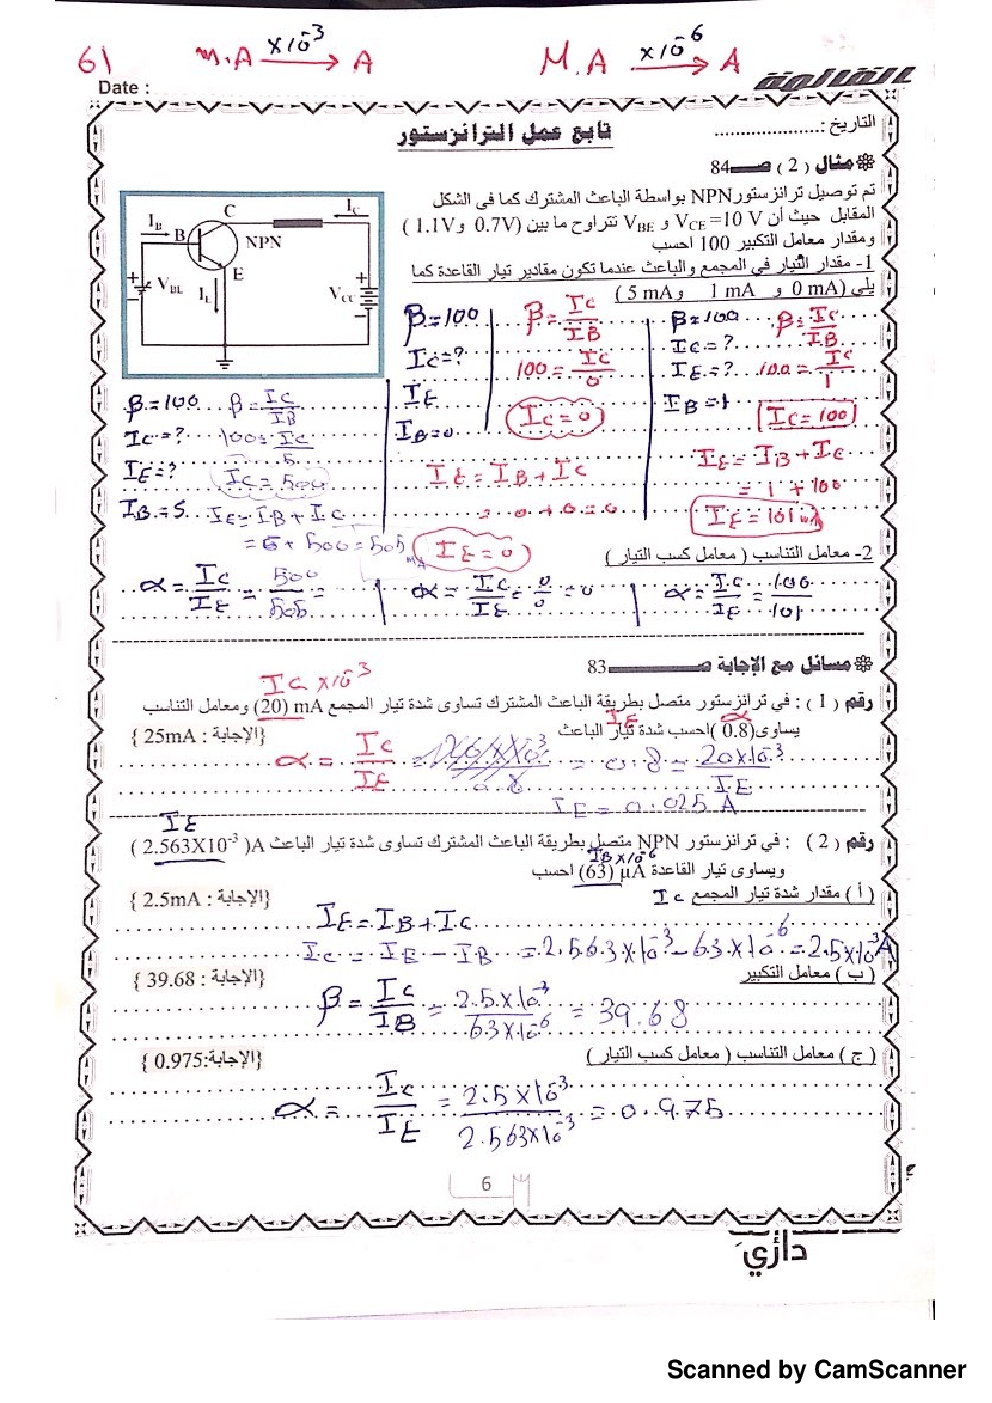 61 m.A ×10⁻³ → A M.A ×10⁻⁶ → A
Date :
التاريخ :......................
تابع عمل الترانزستور
مثال ( 2 ) صـــ84
تم توصيل ترانزستور NPN بواسطة الباعث المشترك كما فى الشكل
المقابل حيث أن VCE =10 V و VBE تتراوح ما بين (0.7V و 1.1V )
ومقدار معامل التكبير 100 احسب
1- مقدار التيار في المجمع والباعث عندما تكون مقادير تيار القاعدة كما
يلي (0 mA و 1 mA و 5 mA )
IB B C IC NPN E VBE IE VCC
β=100 β=IC/IB
IC=? 100=IC/1
IE=?
IB=1 IC=100
IE=IB+IC
=1+100
IE=101mA
β=100 β=IC/IB
IC=? 100=IC/0
IE
IB=0 IC=0
IE=IB+IC
=0+0=0
IE=0
β=100 β=IC/IB
IC=? 100=IC/5
IE=? IC=500
IB=5 IE=IB+IC
=5+500=505 mA
2- معامل التناسب ( معامل كسب التيار )
α=IC/IE=500/505= α=IC/IE=0/0=0 α=IC/IE=100/101
مسائل مع الإجابة صـــــــ83
IC ×10⁻³
رقم ( 1 ) : في ترانزستور متصل بطريقة الباعث المشترك تساوى شدة تيار المجمع mA (20) ومعامل التناسب
IE α
يساوى(0.8 )احسب شدة تيار الباعث {الإجابة : 25mA }
α=IC/IE = 0.8=20×10⁻³/IE
IE=0.025 A
IE
رقم ( 2 ) : في ترانزستور NPN متصل بطريقة الباعث المشترك تساوى شدة تيار الباعث A( 2.563X10⁻³ )
IB×10⁻⁶
ويساوى تيار القاعدة µA (63) احسب
( أ ) مقدار شدة تيار المجمع Ic {الإجابة : 2.5mA }
IE=IB+IC
IC=IE-IB=2.563×10⁻³-63×10⁻⁶=2.5×10⁻³A
( ب ) معامل التكبير {الإجابة : 39.68 }
β=IC/IB=2.5×10⁻³/63×10⁻⁶=39.68
( ج ) معامل التناسب ( معامل كسب التيار ) {الإجابة:0.975 }
α=IC/IE=2.5×10⁻³/2.563×10⁻³=0.975
6
دائري
Scanned by CamScanner